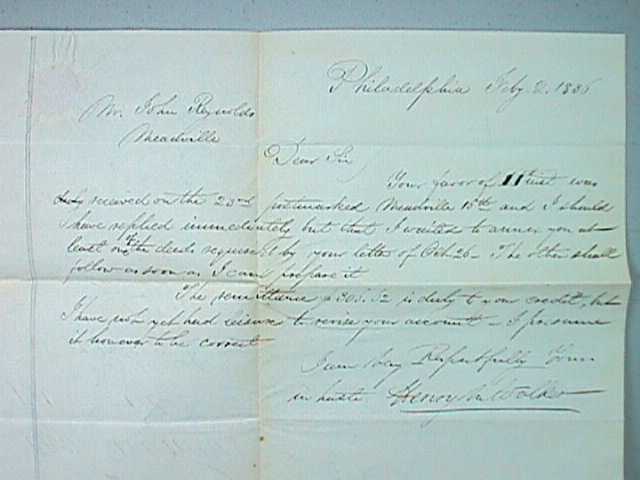 Philadelphia Feby. 2. 1836
Mr. John Reynolds
Meadville
Dear Sir
Your favor of 11th inst was
duly received on the 23rd postmarked Meadville 15th and I should
I have replied immediately but that I waited to annex you at
least of the deeds requested by your letter of Oct 26 - The other shall
follow as soon as I can prepare it
The remittance is duly to your credit, but
I have not yet had leisure to revise your account - I presume
it however to be correct
I am Very Respectfully Yours
in haste Henry